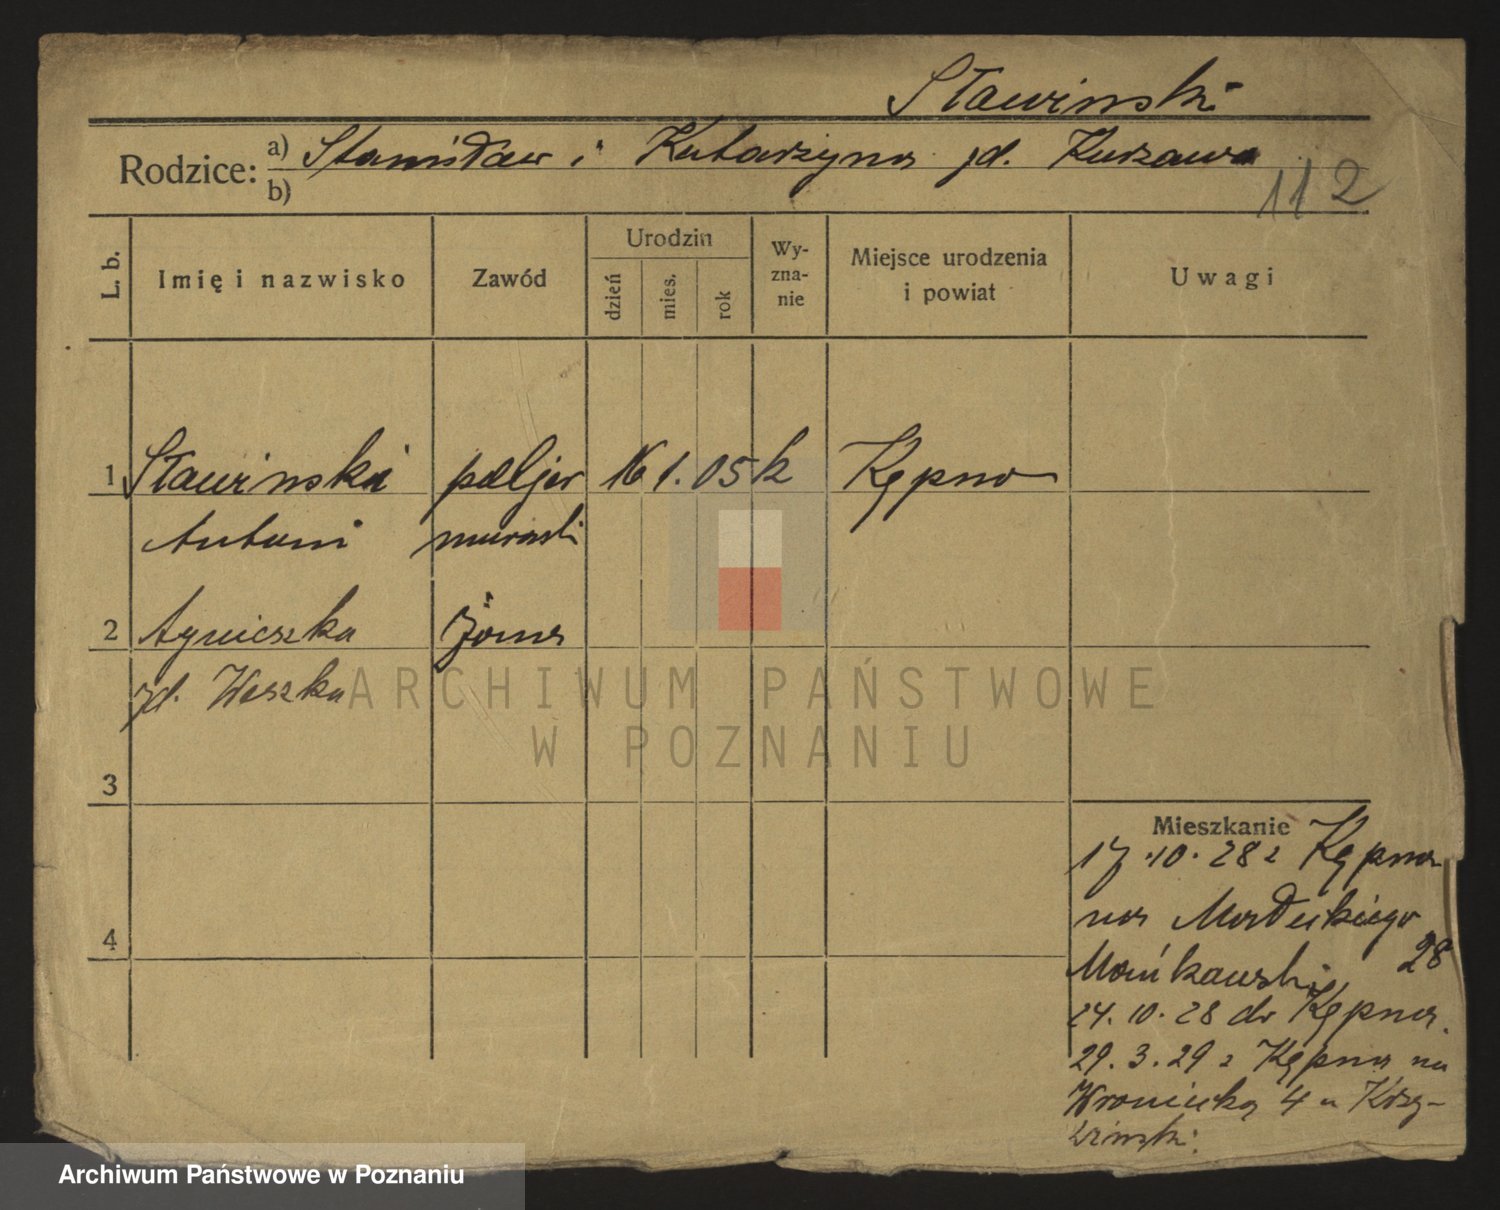 Sławinski
Rodzice: a) Stanisław i Katarzyna zd. Kurzawa
b)
112
L. b.
Imię i nazwisko
Zawód
Urodzin
dzień
mies.
rok
Wy-
zna-
nie
Miejsce urodzenia
i powiat
Uwagi
1 Sławinski 16 1. 05 k Kępno
Antoni murarski
2 Agnieszka żona
zd. Weszka
ARCHIWUM PAŃSTWOWE
W POZNANIU
3
4
Mieszkanie
17.10.28 z Kępna
na Małeckiego
28
24.10.28 do Kępna.
29.3.29 z Kępna na
Wroniecką 4 u Krzy-
winski.
Archiwum Państwowe w Poznaniu